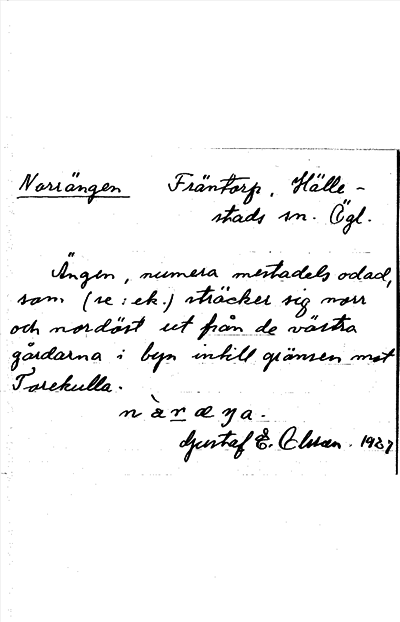 Norrängen Fräntorp, Hälle-
stads sn. Ögl.
Ängen, numera mestadels odad,
som (se: ek.) sträcker sig norr
och nordöst ut från de västra
gårdarna i byn intill gränsen mot
Torekulla.
Gustaf E. Olsson. 1937